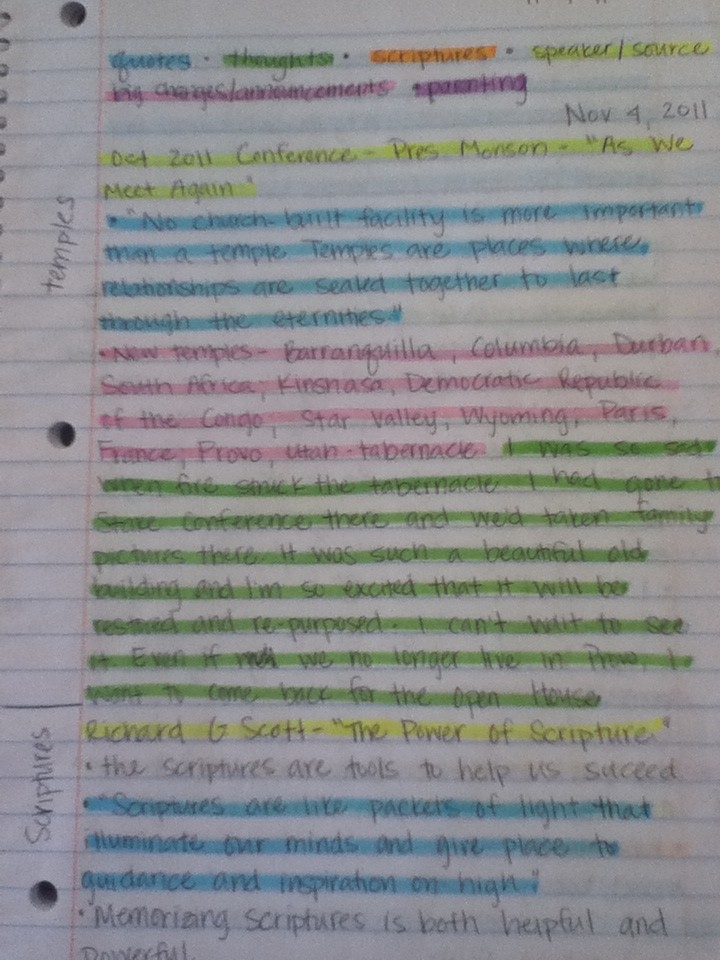 quotes · thoughts · scriptures · speaker/source
big changes/announcements · parenting
Nov 4, 2011
Oct 2011 Conference - Pres Monson - "As We
Meet Again"
temples
· "No church-built facility is more important
than a temple Temples are places where
relationships are sealed together to last
through the eternities."
· New temples - Barranquilla, Columbia, Durban,
South Africa; Kinshasa, Democratic Republic
of the Congo; Star Valley, Wyoming; Paris,
France; Provo, Utah - tabernacle. I was so sad
when fire struck the tabernacle. I had gone to
Stake conference there and we'd taken family
pictures there. It was such a beautiful old
building and I'm so excited that it will be
restored and re-purposed. I can't wait to see
it. Even if we no longer live in Provo, I
want to come back for the open House
Scriptures
Richard G Scott - "The Power of Scripture"
· the scriptures are tools to help us suceed
· "Scriptures are like packets of light that
illuminate our minds and give place to
guidance and inspiration on high"
· Memorizing scriptures is both helpful and
powerful.